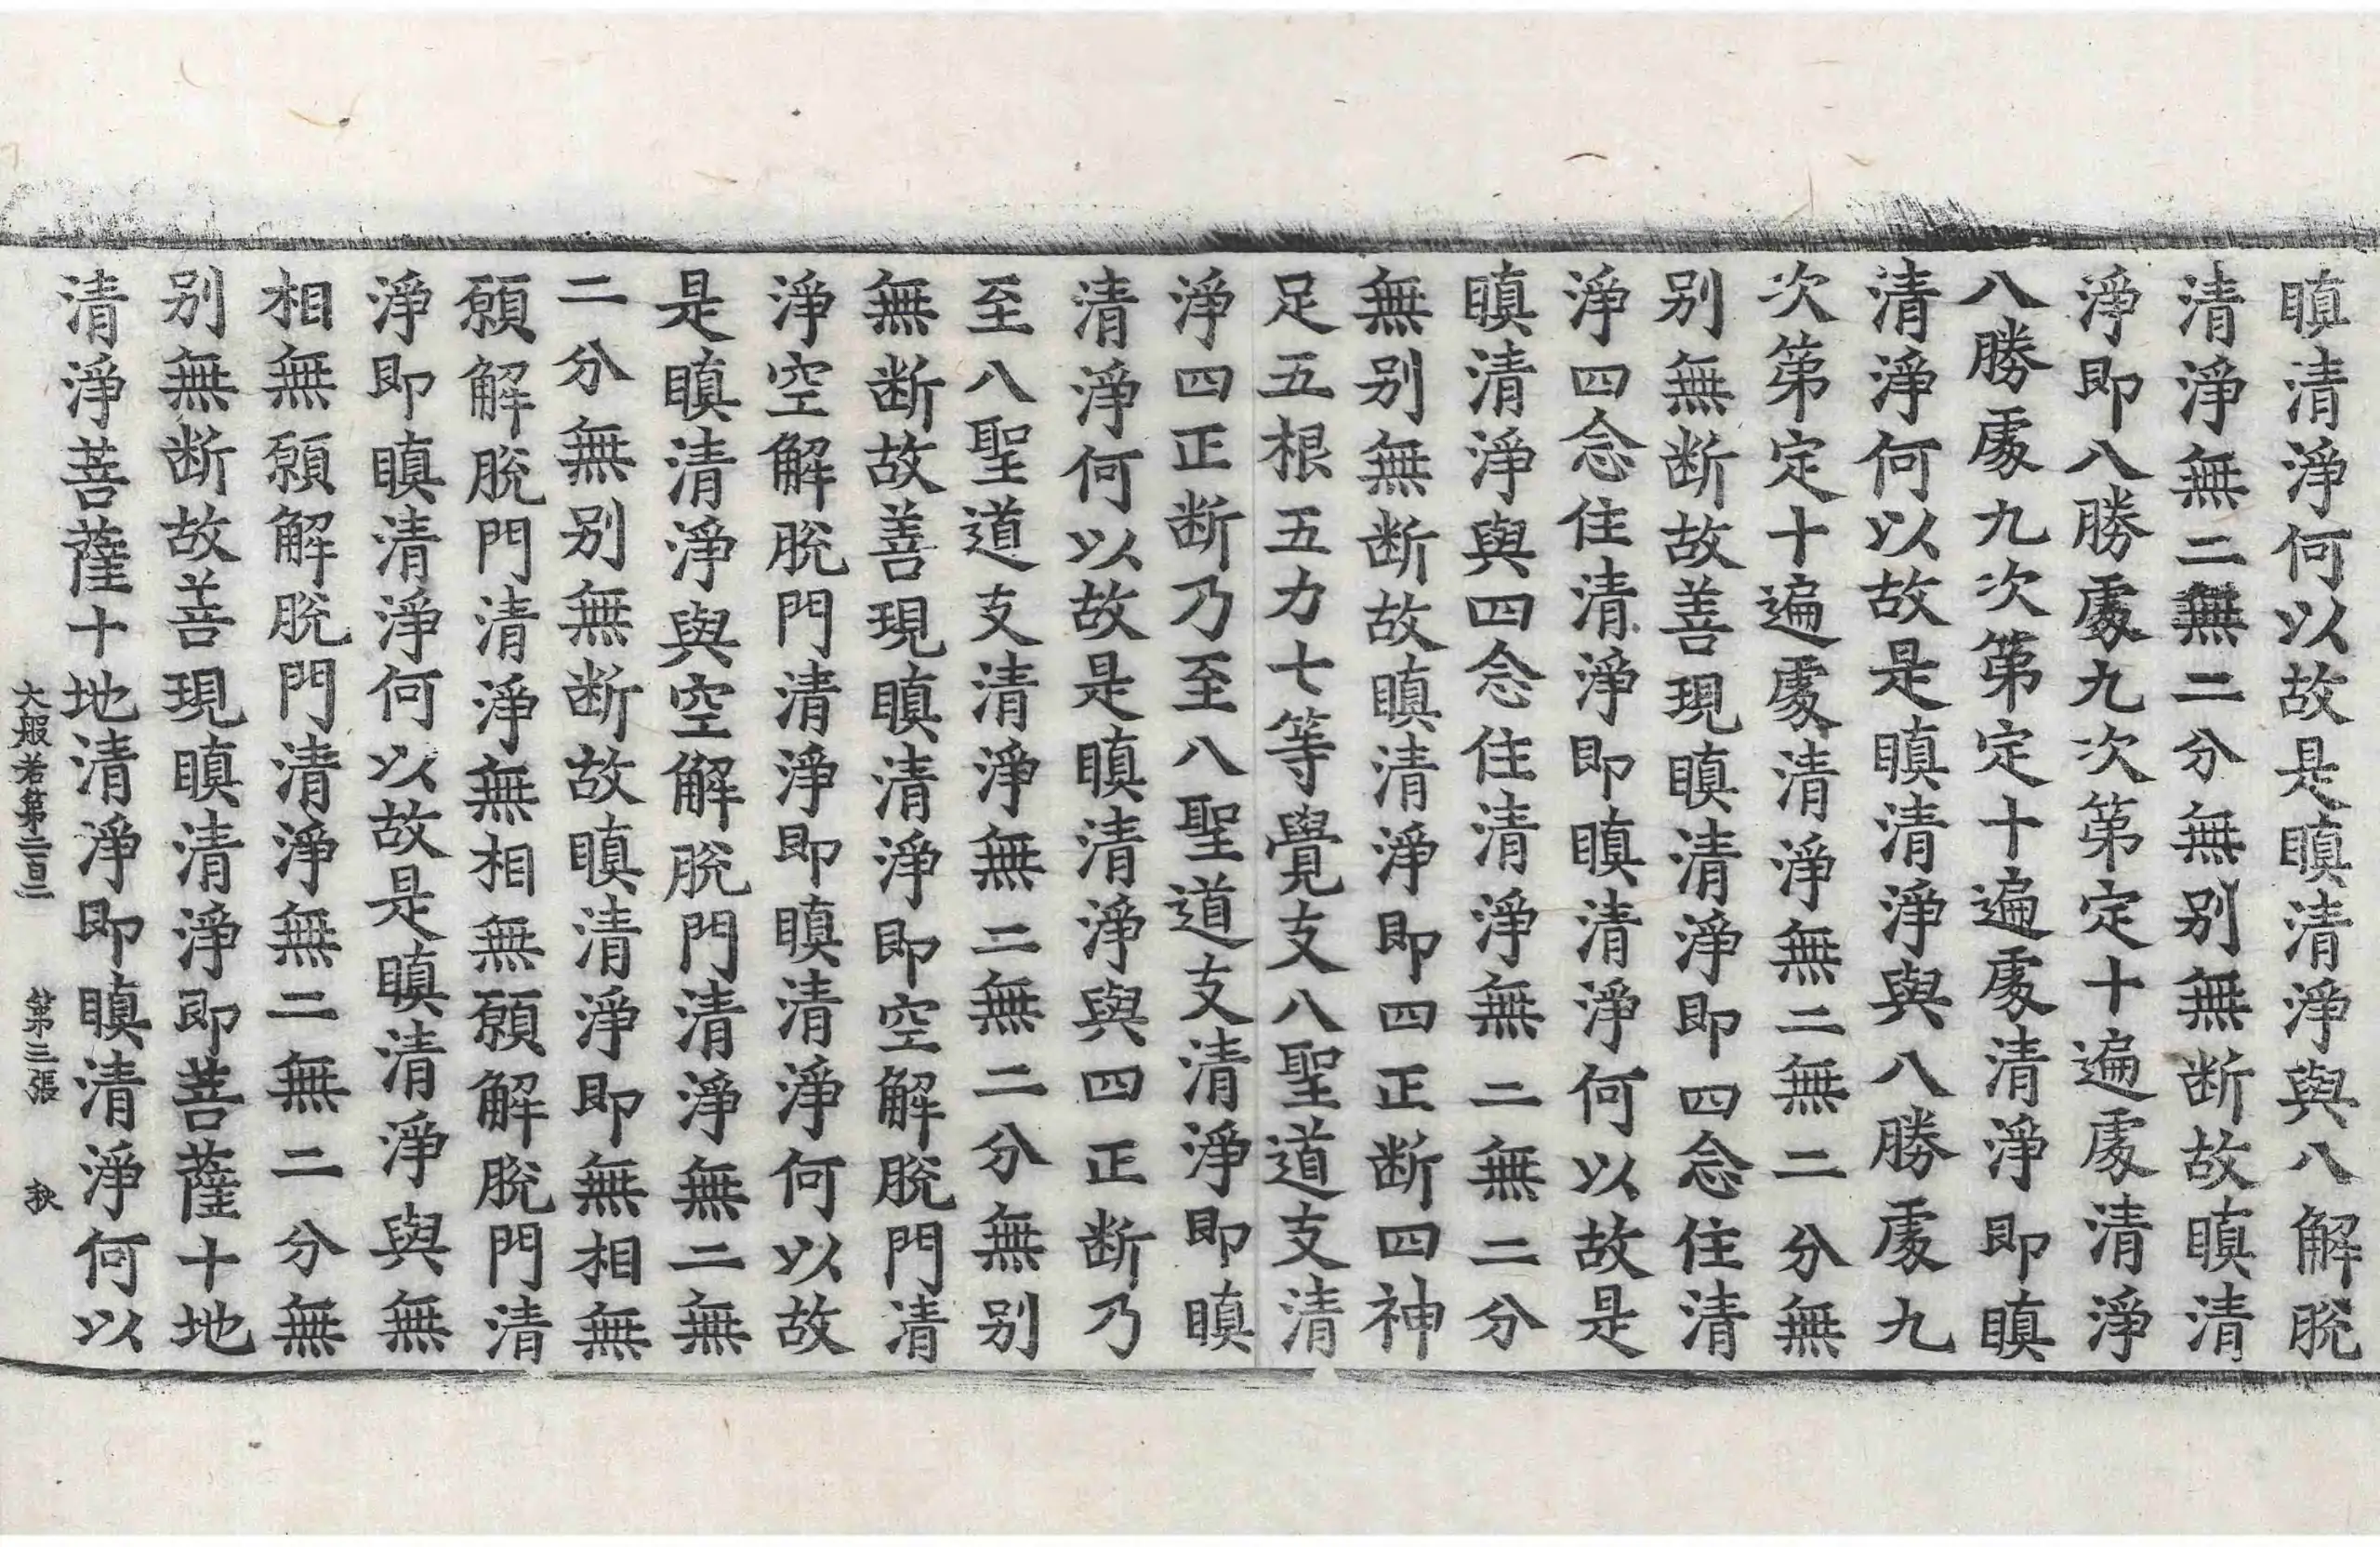 瞋清淨何以故是瞋清淨與八解脫
清淨無二無二分無別無断故瞋清
淨即八勝處九次第定十遍處清淨
八勝處九次第定十遍處清淨即瞋
清淨何以故是瞋清淨與八勝處九
次第定十遍處清淨無二無二分無
別無断故善現瞋清淨即四念住清
淨四念住清淨即瞋清淨何以故是
瞋清淨與四念住清淨無二無二分
無別無断故瞋清淨即四正断四神
足五根五力七等覺支八聖道支清
淨四正断乃至八聖道支清淨即瞋
清淨何以故是瞋清淨與四正断乃
至八聖道支清淨無二無二分無別
無断故善現瞋清淨即空解脫門清
淨空解脫門清淨即瞋清淨何以故
是瞋清淨與空解脫門清淨無二無
二分無別無断故瞋清淨即無相無
願解脫門清淨無相無願解脫門清
淨即瞋清淨何以故是瞋清淨與無
相無願解脫門清淨無二無二分無
別無断故善現瞋清淨即菩薩十地
清淨菩薩十地清淨即瞋清淨何以
大般若第二百二 第三張